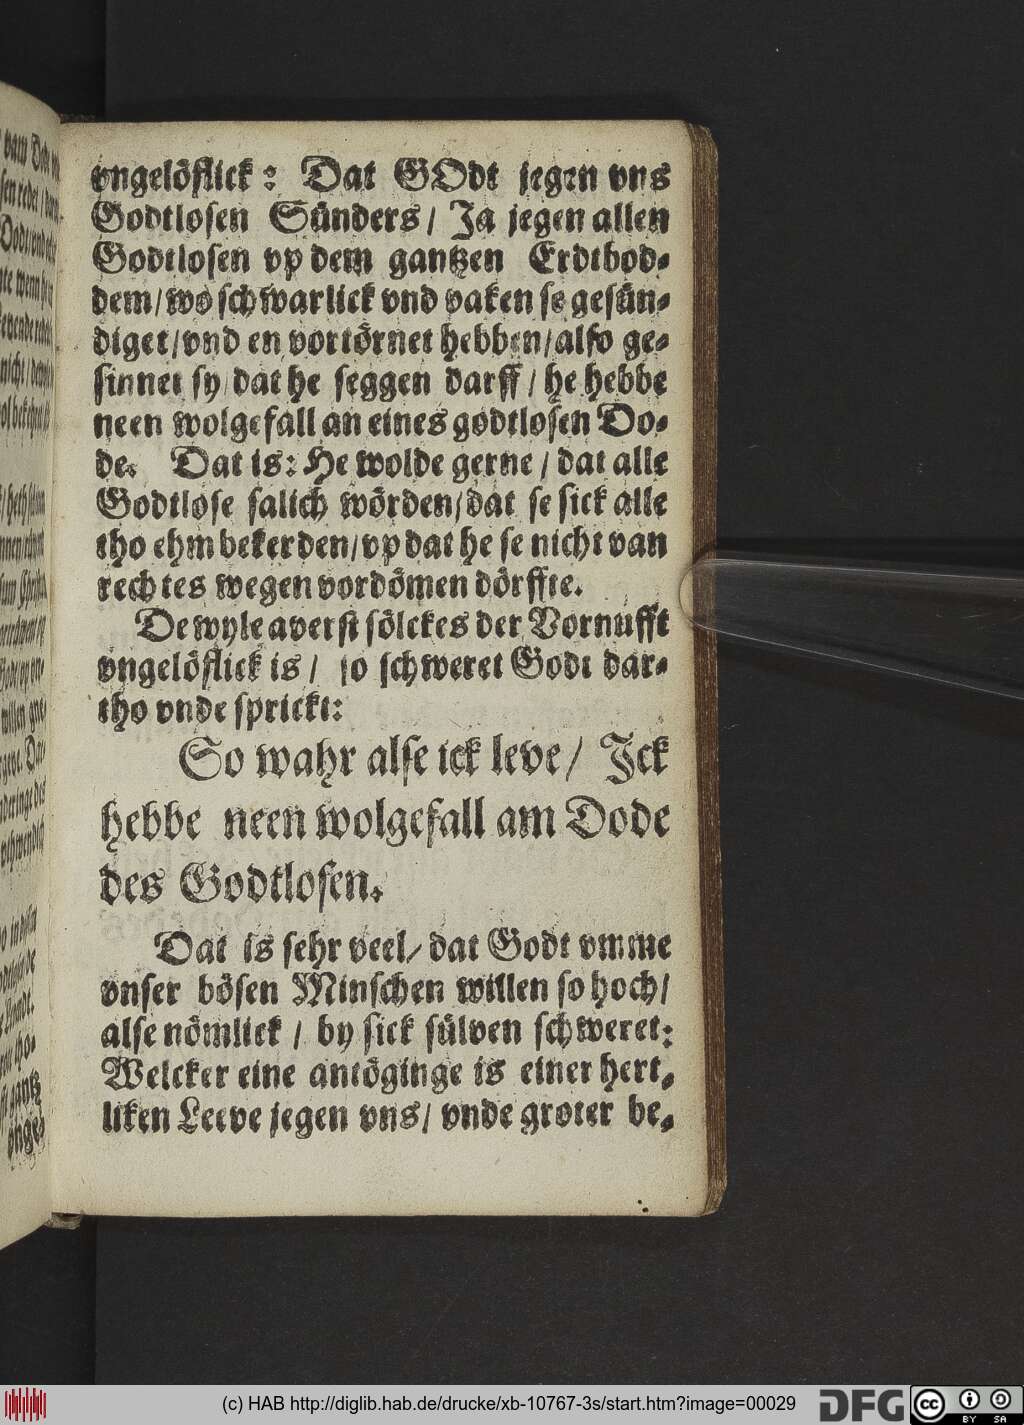 vngelöflick: Dat GOdt jegen vns
Godtlosen Sünders / Ja jegen allen
Godtlosen vp dem gantzen Erdtbod-
dem / wo schwarlick vnd vaken se gesün-
diget / vnd en vortörnet hebben / also ge-
sinnet sy / dat he seggen darff / he hebbe
neen wolgefall an eines godtlosen Do-
de. Dat is: He wolde gerne / dat alle
Godtlose salich wörden / dat se sick alle
tho ehm bekerden / vp dat he se nicht van
rechtes wegen vordömen dörffte.
Dewyle averst sölckes der Vornufft
vngelöflick is / so schweret Godt dar-
tho vnde sprickt:
So wahr alse ick leve / Jck
hebbe neen wolgefall am Dode
des Godtlosen.
Dat is sehr veel / dat Godt vmme
vnser bösen Minschen willen so hoch /
alse nömlick / by sick sülven schweret:
Welcker eine antöginge is einer hert-
liken Leeve jegen vns / vnde groter be-
(c) HAB http://diglib.hab.de/drucke/xb-10767-3s/start.htm?image=00029
DFG
cc
BY SA